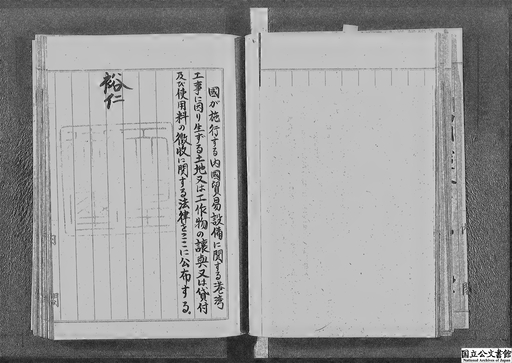 國が施行する内國貿易設備に関する港湾
工事に因り生ずる土地又は工作物の譲與又は貸付
及び使用料の徴收に関する法律をここに公布する。
裕仁
国立公文書館
National Archives of Japan